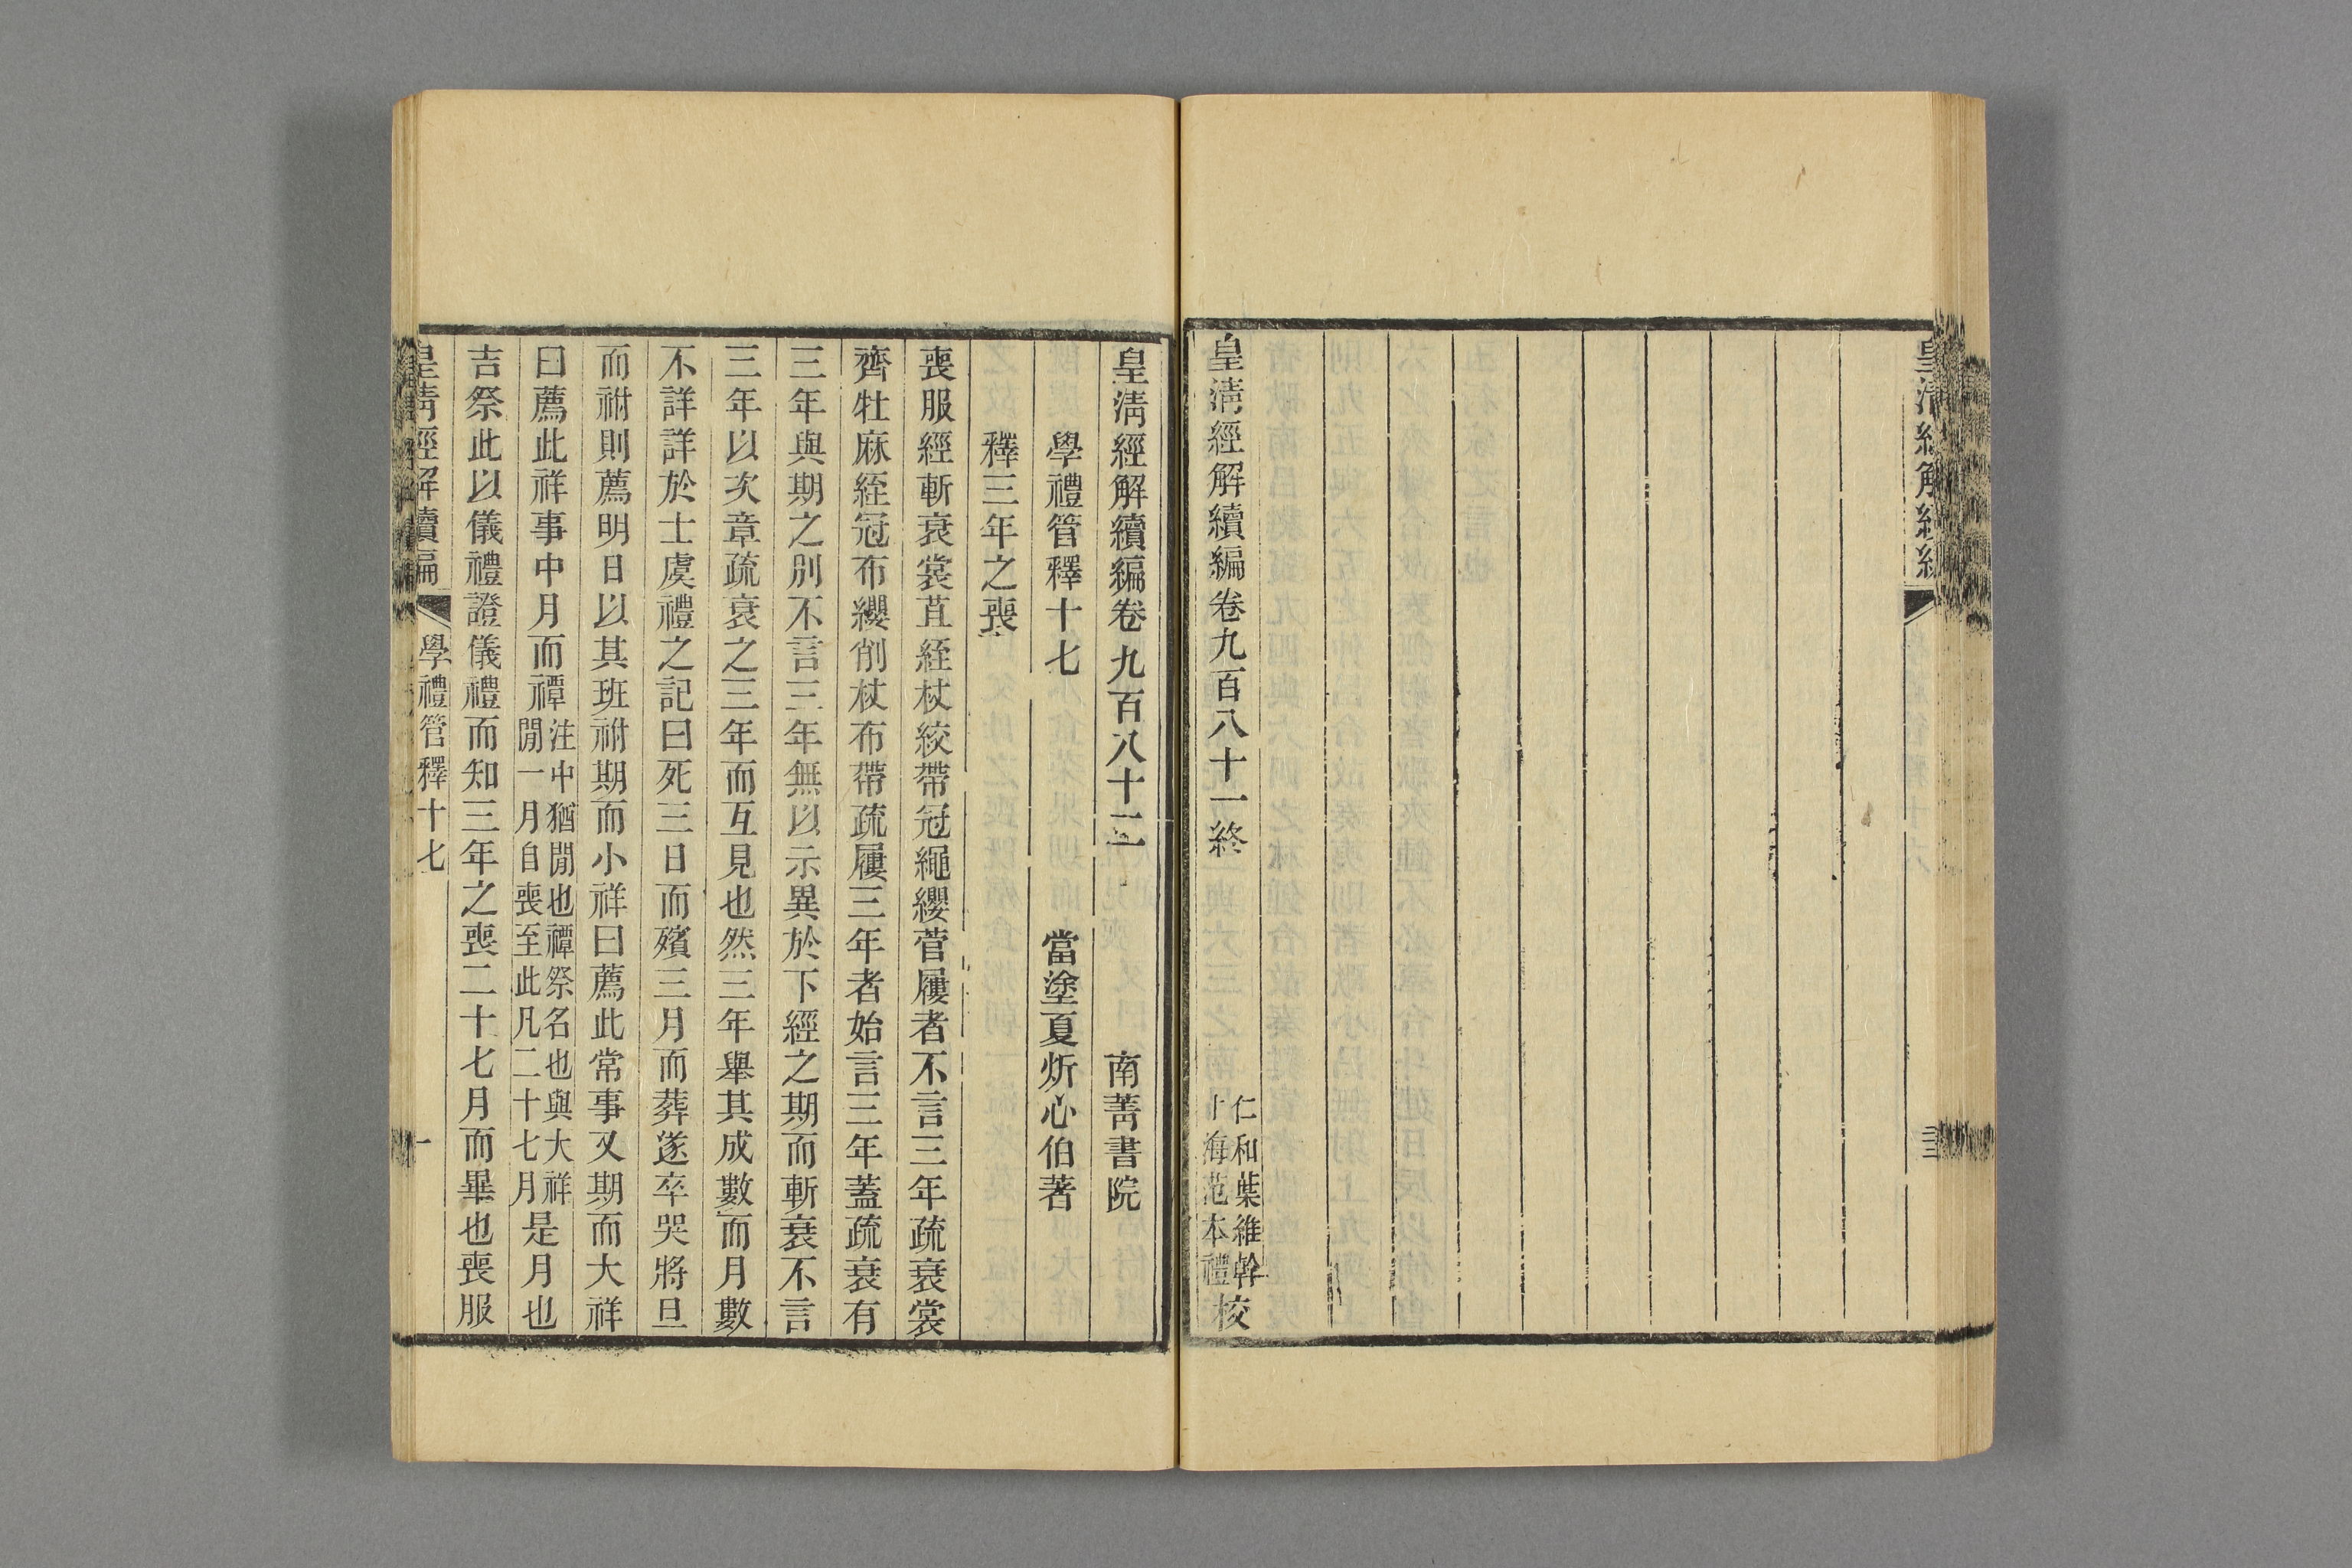 皇清經解續編卷九百八十一終
仁和葉維幹
上海范本禮
校
皇清經解續編卷九百八十二
南菁書院
學禮管釋十七
當塗夏炘心伯著
釋三年之喪
喪服經斬衰裳苴絰杖絞帶冠繩纓菅屨者不言三年疏衰裳
齊牡麻絰冠布纓削杖布帶疏屨三年者始言三年蓋疏衰有
三年與期之別不言三年無以示異於下經之期而斬衰不言
三年以次章疏衰之三年而互見也然三年舉其成數而月數
不詳詳於士虞禮之記曰死三日而殯三月而葬遂卒哭將旦
而祔則薦明日以其班祔期而小祥曰薦此常事又期而大祥
曰薦此祥事中月而禫
注中猶閒也禫祭名也與大祥
閒一月自喪至此凡二十七月
是月也
吉祭此以儀禮證儀禮而知三年之喪二十七月而畢也喪服
皇清經解續編
學禮管釋十七
一